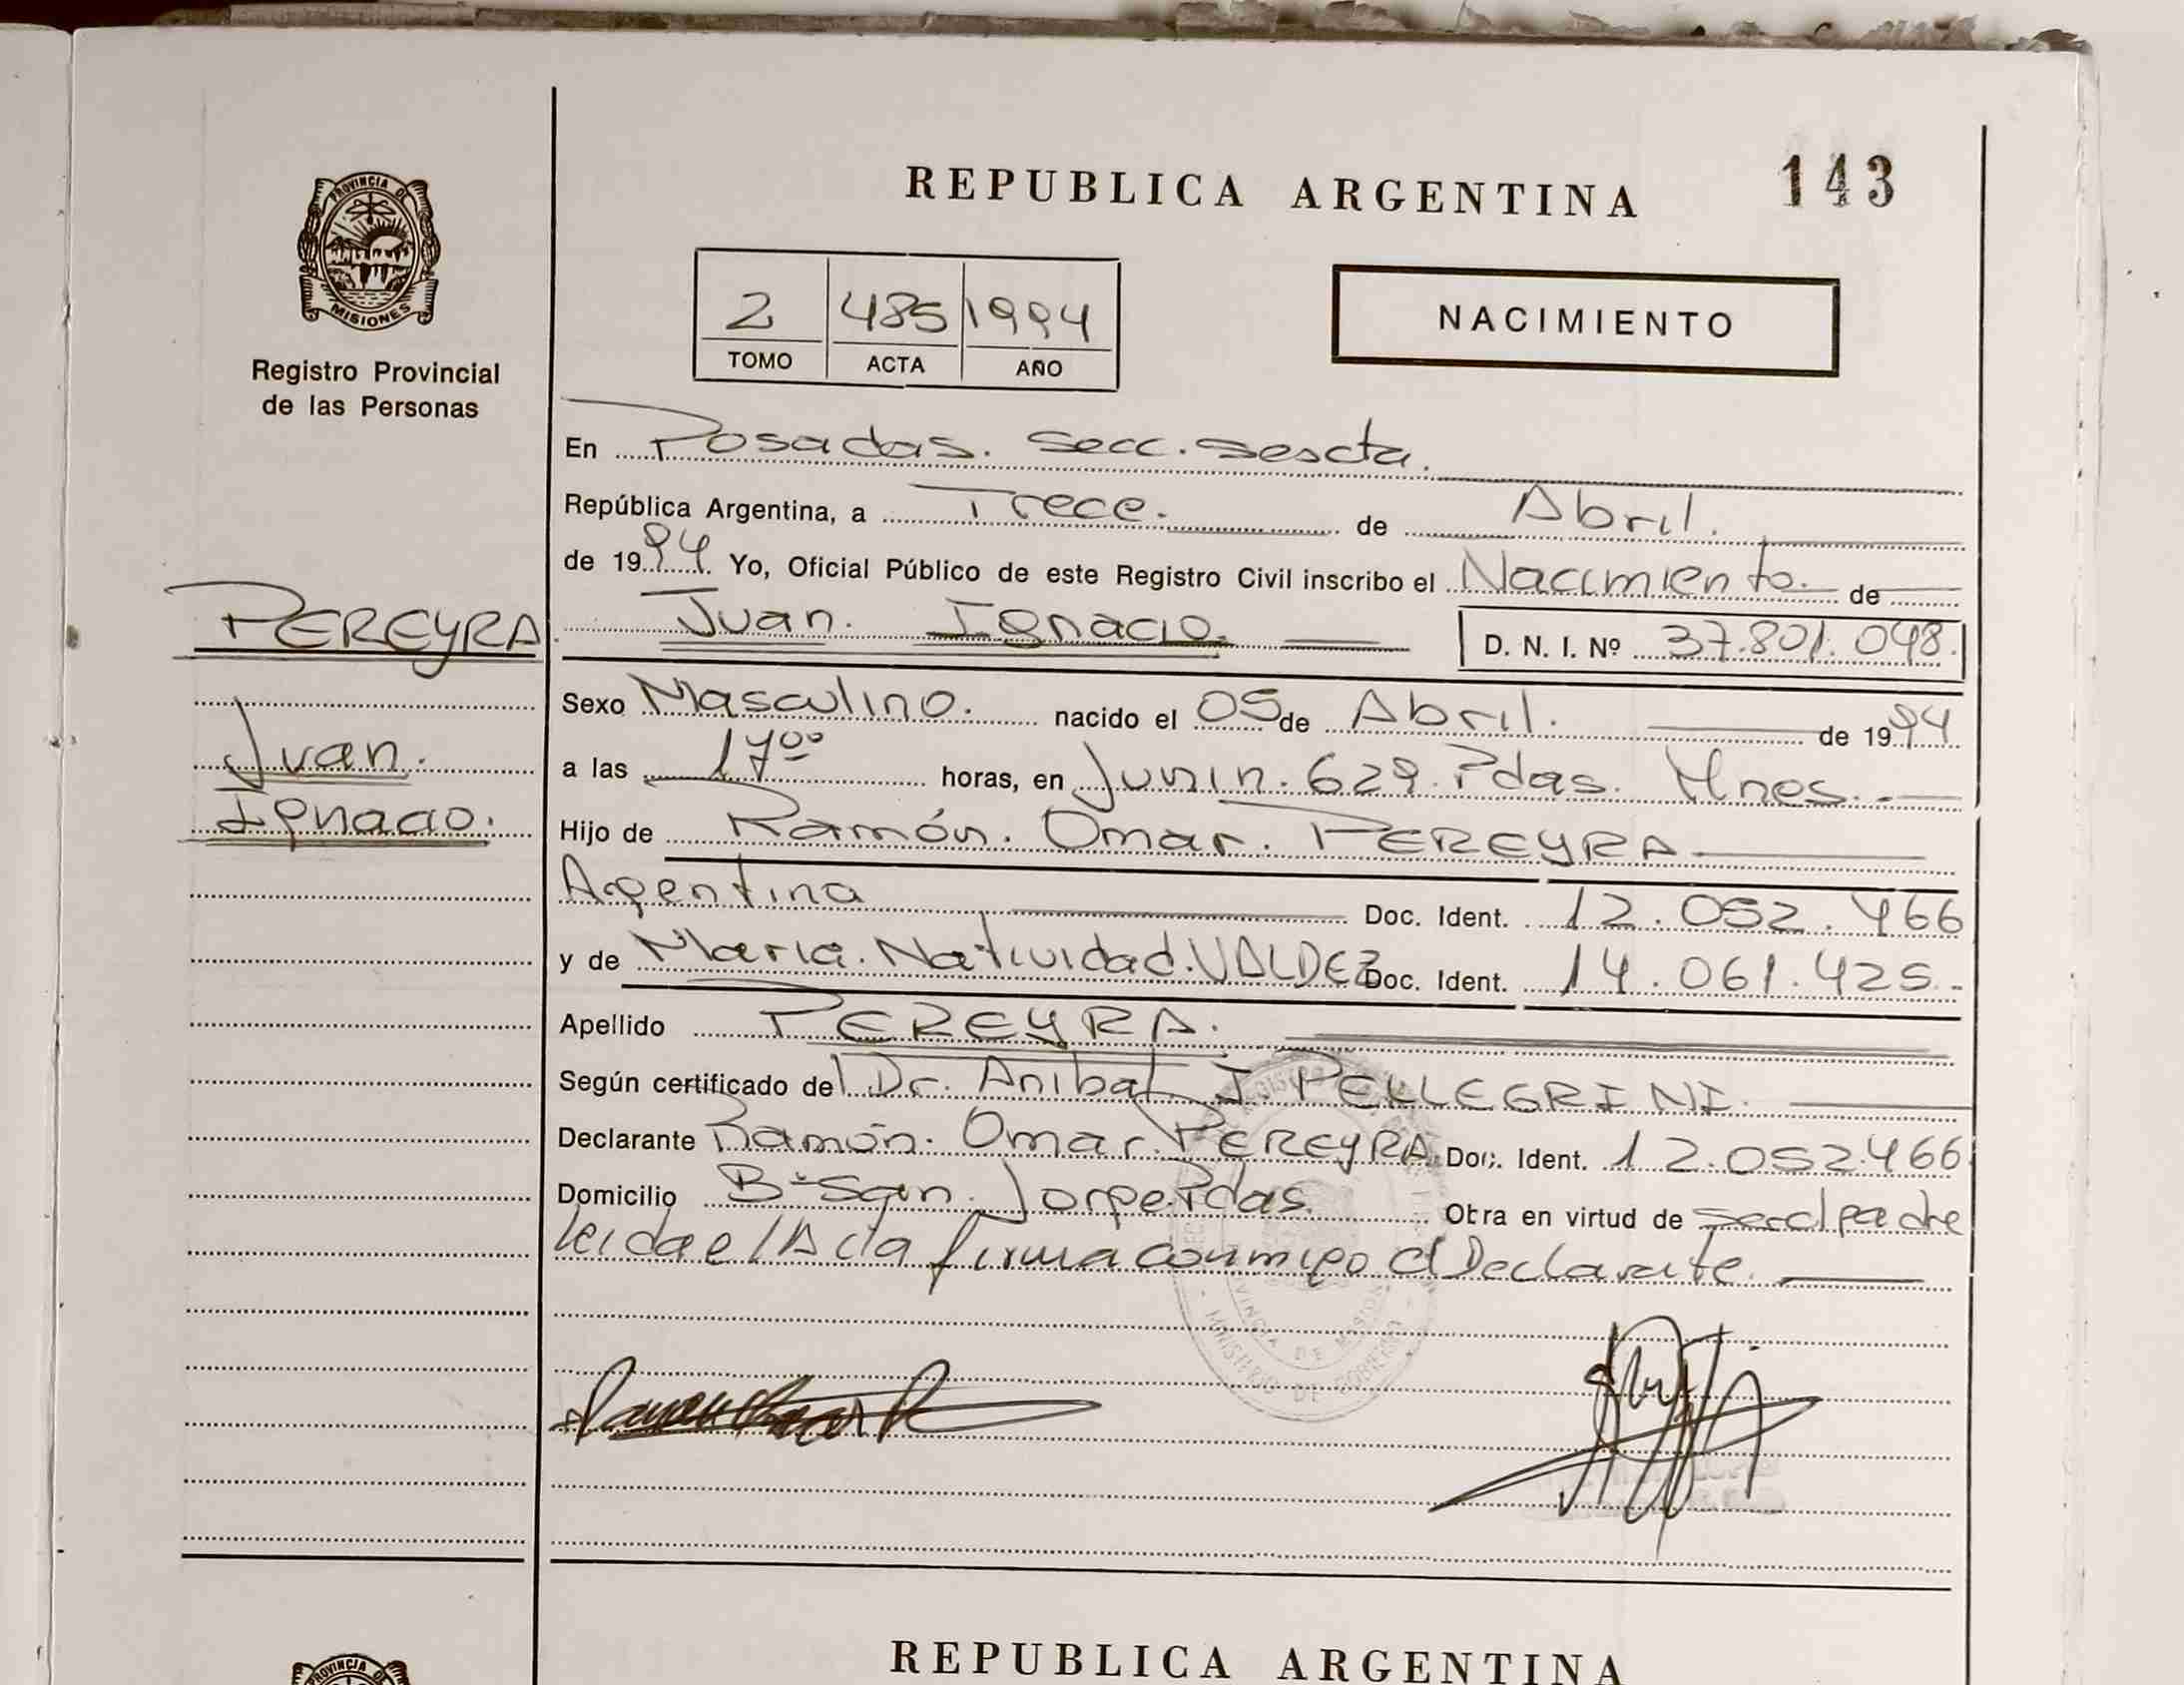 PROVINCIA DE
MISIONES
Registro Provincial
de las Personas
PEREYRA
Juan.
Ignacio.
REPUBLICA ARGENTINA 143
2 485 1994
TOMO ACTA AÑO
NACIMIENTO
En Posadas. Secc. sescta.
República Argentina, a Trece. de Abril.
de 1994 Yo, Oficial Público de este Registro Civil inscribo el Nacimiento. de
Juan. Ignacio. D. N. I. Nº 37.801.048.
Sexo Masculino. nacido el 05 de Abril. de 1994
a las 17ºº horas, en Junin. 629. Pdas. Mnes.
Hijo de Ramón. Omar. PEREYRA
Argentina Doc. Ident. 12.052.466
y de Maria. Natividad. VALDEZ Doc. Ident. 14.061.425.
Apellido PEREYRA.
Según certificado del Dr. Anibal J. PELLEGRINI.
Declarante Ramón. Omar. PEREYRA Doc. Ident. 12.052.466
Domicilio Bº San. Jorge. Pdas. Obra en virtud de ser el padre
leida el Acta firma conmigo el Declarate.
PROVINCIA DE MISIONES
MINISTERIO DE GOBIERNO
REPUBLICA ARGENTINA
PROVINCIA DE